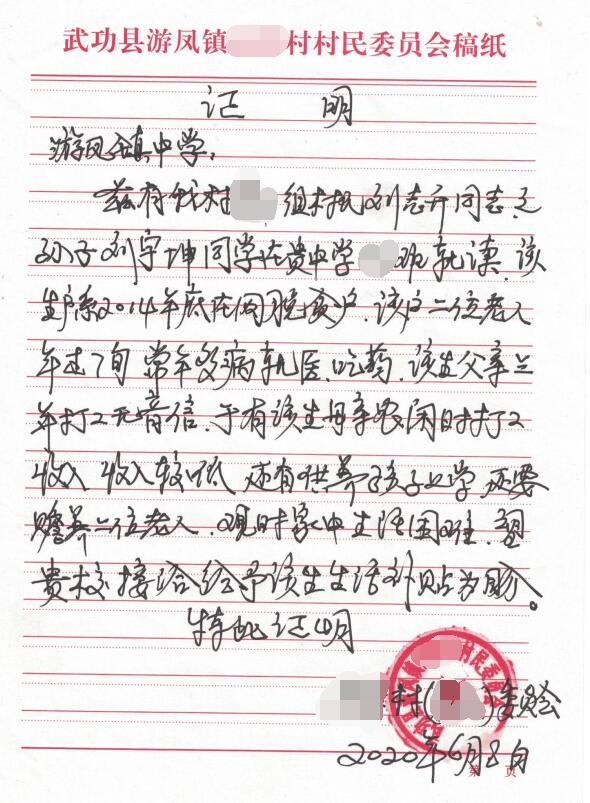 武功县游凤镇 村村民委员会稿纸
证 明
游凤镇中学：
兹有我村 组村民刘志升同志之
孙子刘宇坤同学在贵中学 班就读．该
生户系2014年底在网脱贫户．该户二位老人
年过7旬 常年多病就医．吃药．该生父亲三
年打工无音信．于有该生母亲农闲时打工
收入 收入较低 还有供养孩子上学 还要
赡养二位老人．现时家中生活困难．望
贵校接洽给予该生生活补贴为盼。
特此证明
村民委员会
村( )委员会
2020年6月8日
第 页